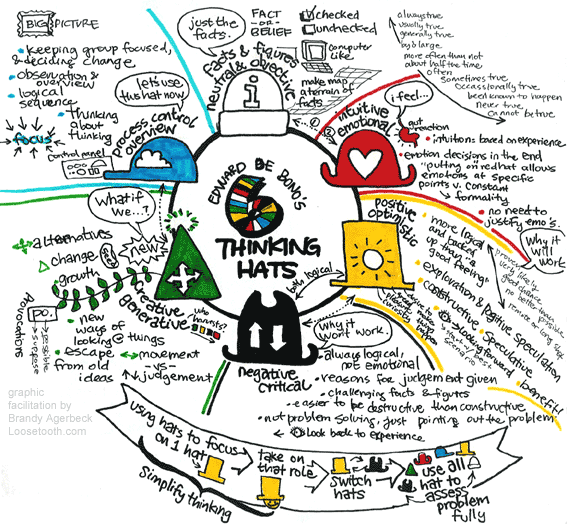 BIG PICTURE
• keeping group focused,
& deciding change
• observation &
overview
• logical
sequence
• thinking
about
thinking
focus
control panel
process control
overview
let's use
this hat now.
just the
facts.
facts & figures
neutral & objective
i
FACT
-OR-
BELIEF
checked
unchecked
computer
like.
make map
& terrain of
facts
①
②
always true
usually true
generally true
by & large
more often than not
about half the time
often
sometimes true
occassionally true
been known to happen
never true
cannot be true
intuitive
emotional
i feel...
gut
reaction
• intuitions based on experience
• emotion decisions in the end
• "putting on red hat allows
emotions at specific
points v. constant
→ formality
• no need to
justify emo's.
EDWARD DE BONO'S
6
THINKING
HATS
positive
optimistic
both logical
Why it
will work
• more logical
and backed
up than "a
good feeling"
• exploration & positive speculation
• constructive
• speculative
looking forward
• benefit!
proven
very likely
good chance
no better than
possible
remote or long shot
why it won't work.
negative
critical
• always logical,
not emotional
• reasons for judgement given
• challenging facts & figures
• easier to be destructive than constructive
• not problem solving, just pointing out the problem
look back to experience
creative
generative
what if
we...?
new
who harvests?
alternatives
change
growth
provocations
po.
suppose
possible
• new
ways of
looking @ things
• escape
from old
ideas
movement
-vs-
judgement
graphic
facilitation by
Brandy Agerbeck
Loosetooth.com
using hats to focus
on 1 hat
take on
that role
switch
hats
use all
hat to
assess
problem
fully
simplify thinking